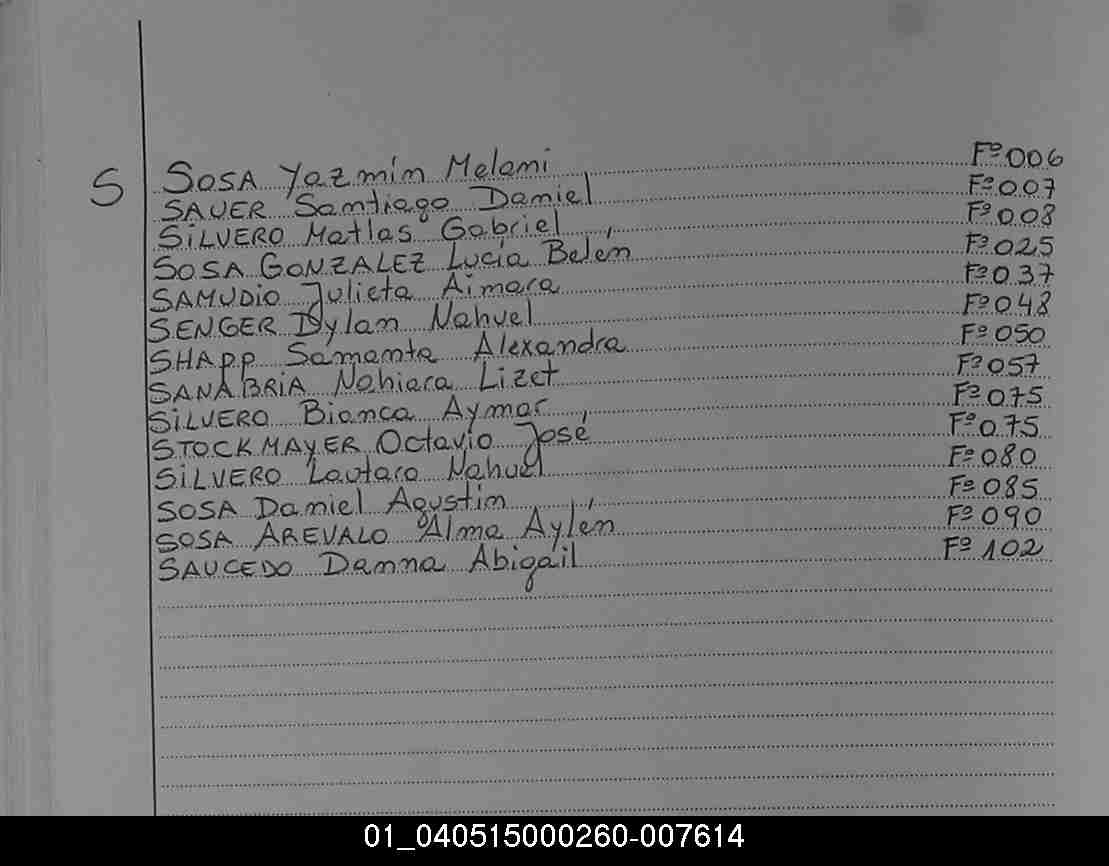 S
SOSA Yazmín Melani Fº 006
SAUER Santiago Daniel Fº 007
SILVERO Matías Gabriel Fº 008
SOSA GONZALEZ Lucía Belén Fº 025
SAMUDIO Julieta Aimara Fº 037
SENGER Dylan Nahuel Fº 048
SHAPP Samanta Alexandra Fº 050
SANABRIA Nahiara Lizet Fº 057
SILVERO Bianca Aymar Fº 075
STOCKMAYER Octavio José Fº 075
SILVERO Lautaro Nahuel Fº 080
SOSA Daniel Agustín Fº 085
SOSA AREVALO Alma Aylén Fº 090
SAUCEDO Danna Abigail Fº 102
01_040515000260-007614